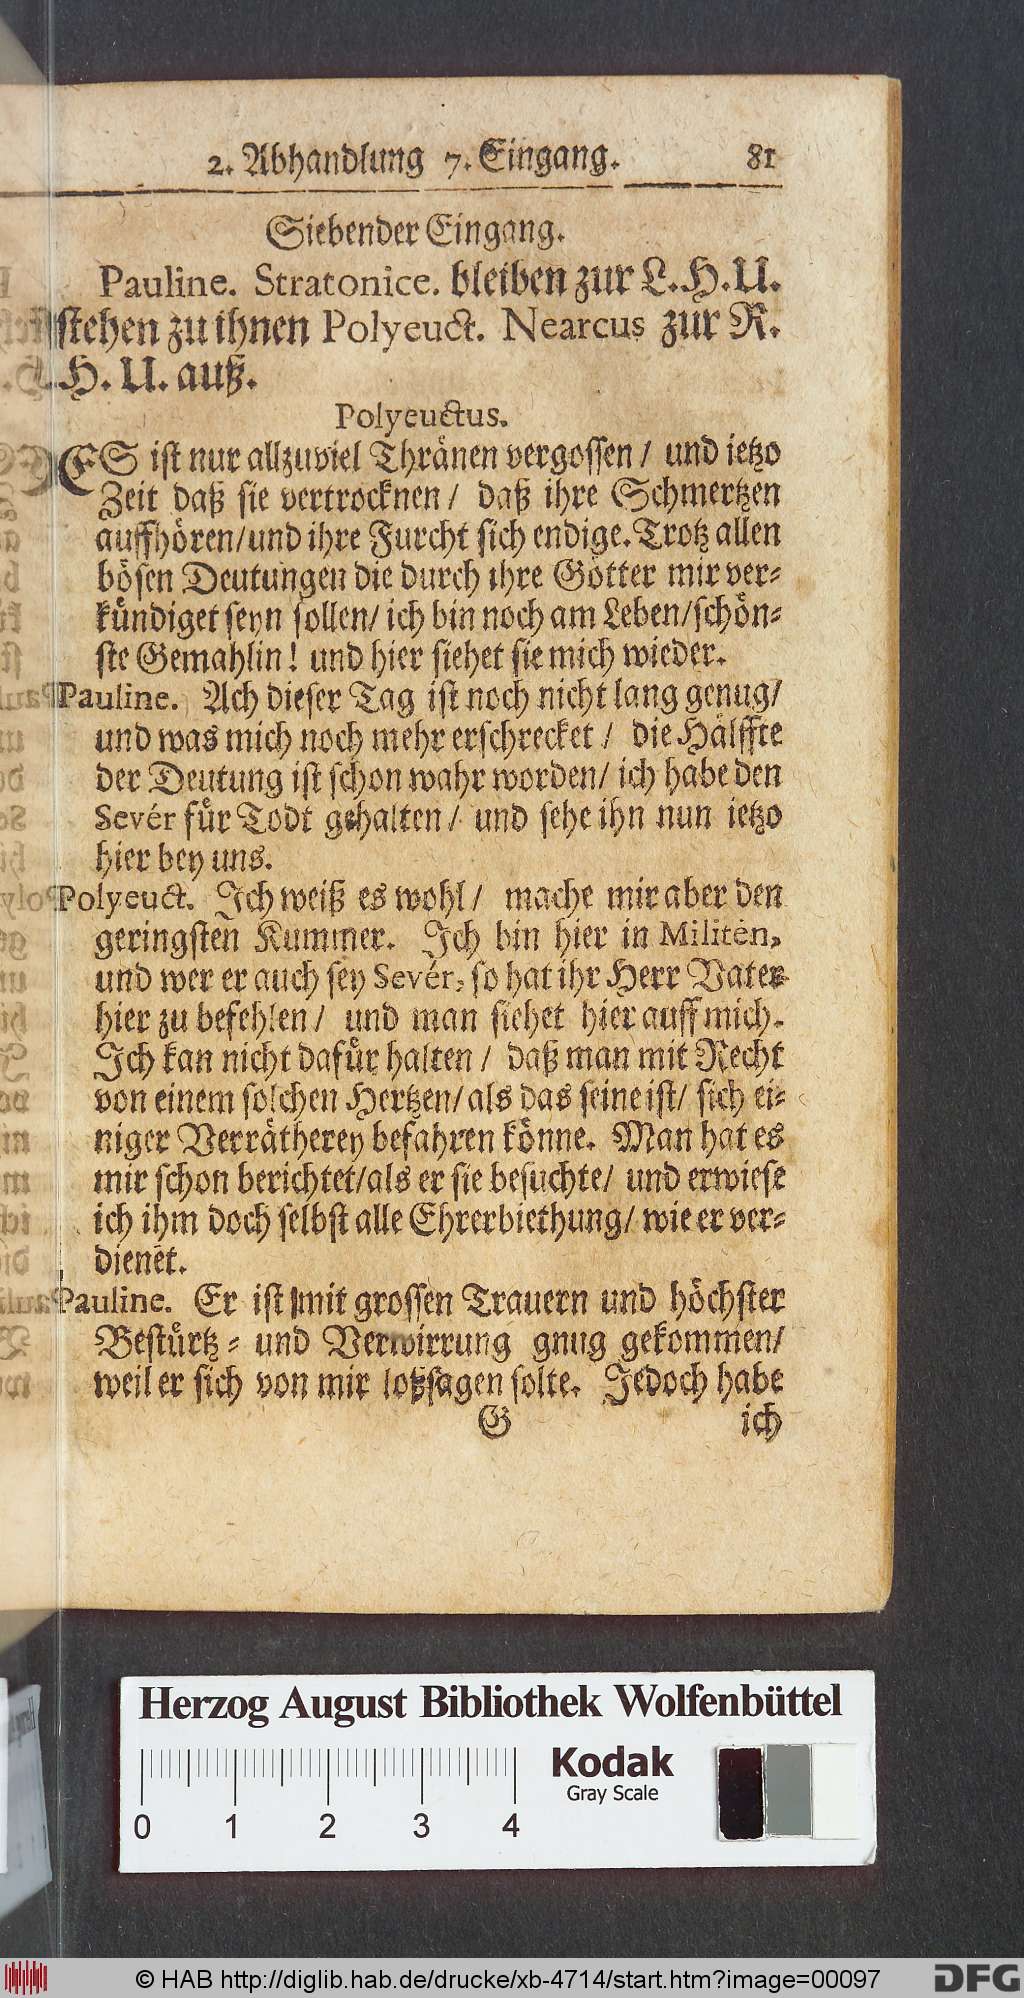 2. Abhandlung 7. Eingang. 81
Siebender Eingang.
Pauline. Stratonice. bleiben zur L. H. U.
stehen zu ihnen Polyeuct. Nearcus zur R.
H. U. auß.
Polyeuctus.
ES ist nur allzuviel Thränen vergossen / und ietzo
Zeit daß sie vertrocknen / daß ihre Schmertzen
auffhören / und ihre Furcht sich endige. Trotz allen
bösen Deutungen die durch ihre Götter mir ver-
kündiget seyn sollen / ich bin noch am Leben / schön-
ste Gemahlin! und hier siehet sie mich wieder.
Pauline. Ach dieser Tag ist noch nicht lang genug /
und was mich noch mehr erschrecket / die Hälffte
der Deutung ist schon wahr worden / ich habe den
Sevér für Todt gehalten / und sehe ihn nun ietzo
hier bey uns.
Polyeuct. Ich weiß es wohl / mache mir aber den
geringsten Kummer. Ich bin hier in Militén,
und wer er auch sey Sevér, so hat ihr Herr Vater
hier zu befehlen / und man siehet hier auff mich.
Ich kan nicht dafür halten / daß man mit Recht
von einem solchen Hertzen / als das seine ist / sich ei-
niger Verrätherey befahren könne. Man hat es
mir schon berichtet / als er sie besuchte / und erwiese
ich ihm doch selbst alle Ehrerbiethung / wie er ver-
dienet.
Pauline. Er ist mit grossen Trauern und höchster
Bestürtz- und Verwirrung gnug gekommen /
weil er sich von mir loßsagen solte. Jedoch habe
G ich
Herzog August Bibliothek Wolfenbüttel
Kodak
Gray Scale
0 1 2 3 4
© HAB http://diglib.hab.de/drucke/xb-4714/start.htm?image=00097
DFG